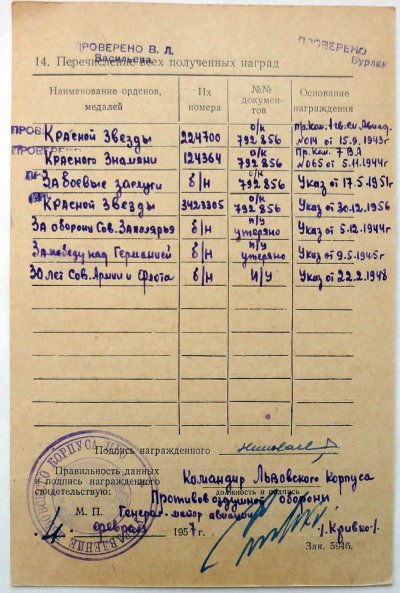 ПРОВЕРЕНО В. Л.
Васильева
ПРОВЕРЕНО
Бурлак
14. Перечисление всех полученных наград
Наименование орденов, медалей
Их номера
№№ документов
Основание награждения
Красной Звезды 224700 о/к 792856 Пр.ком. №014 от 15.9.1943г
Красного Знамени 124364 о/к 792856 Пр.ком. 7 ВА №065 от 5.11.1944г
За боевые заслуги б/н о/к 792856 Указ от 17.5.1951г
Красной Звезды 3423305 о/к 792856 Указ от 30.12.1956
За оборону Сов. Заполярья б/н п/у утеряно Указ от 5.12.1944г
За победу над Германией б/н п/у утеряно Указ от 9.5.1945г
30 лет Сов. Армии и Флота б/н Указ от 22.2.1948
Подпись награжденного
Правильность данных
и подписи награжденного
свидетельствую:
Командир Львовского Корпуса
должность и подпись
Противовоздушной обороны
М. П. Генерал-майор авиации
/Кривко/
4 февраля 1957г.
Зак. 5946.